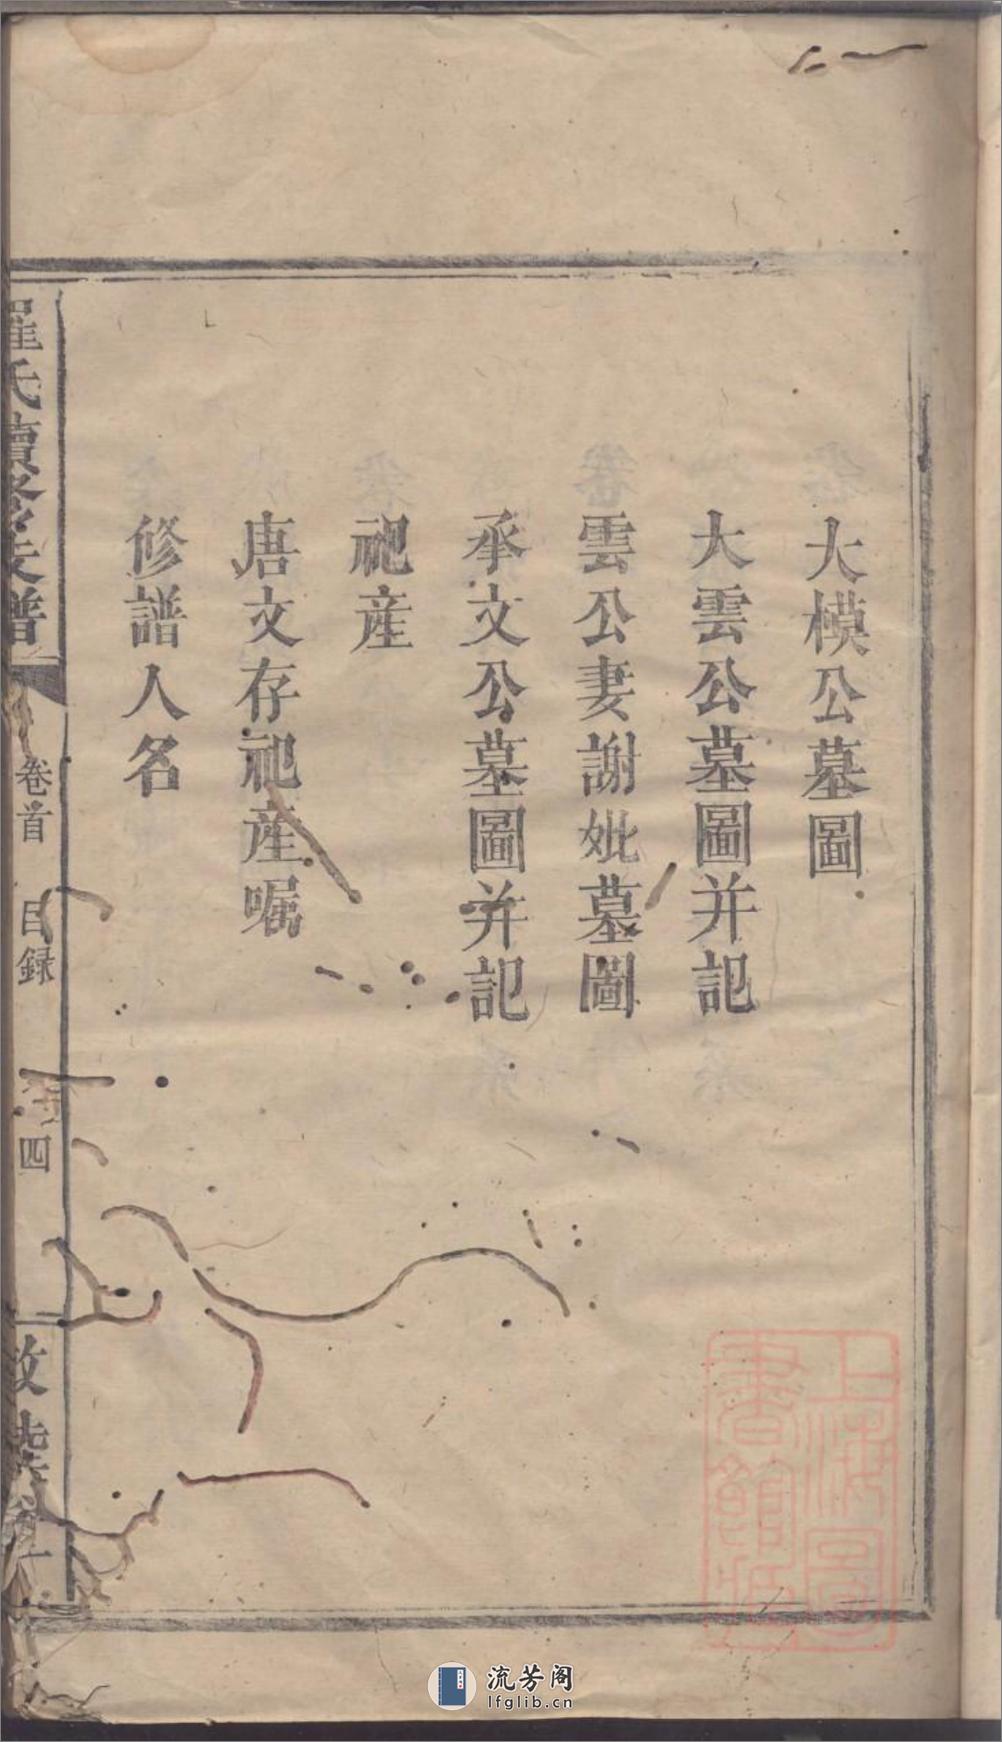 大模公墓圖
大雲公墓圖并記
雲公妻謝妣墓圖
承文公墓圖并記
祀産
唐文存祀産嘱
修譜人名
羅氏續修支譜
卷首
目録
四
敦
上海圖
書館藏
流芳阁
lfglib.cn